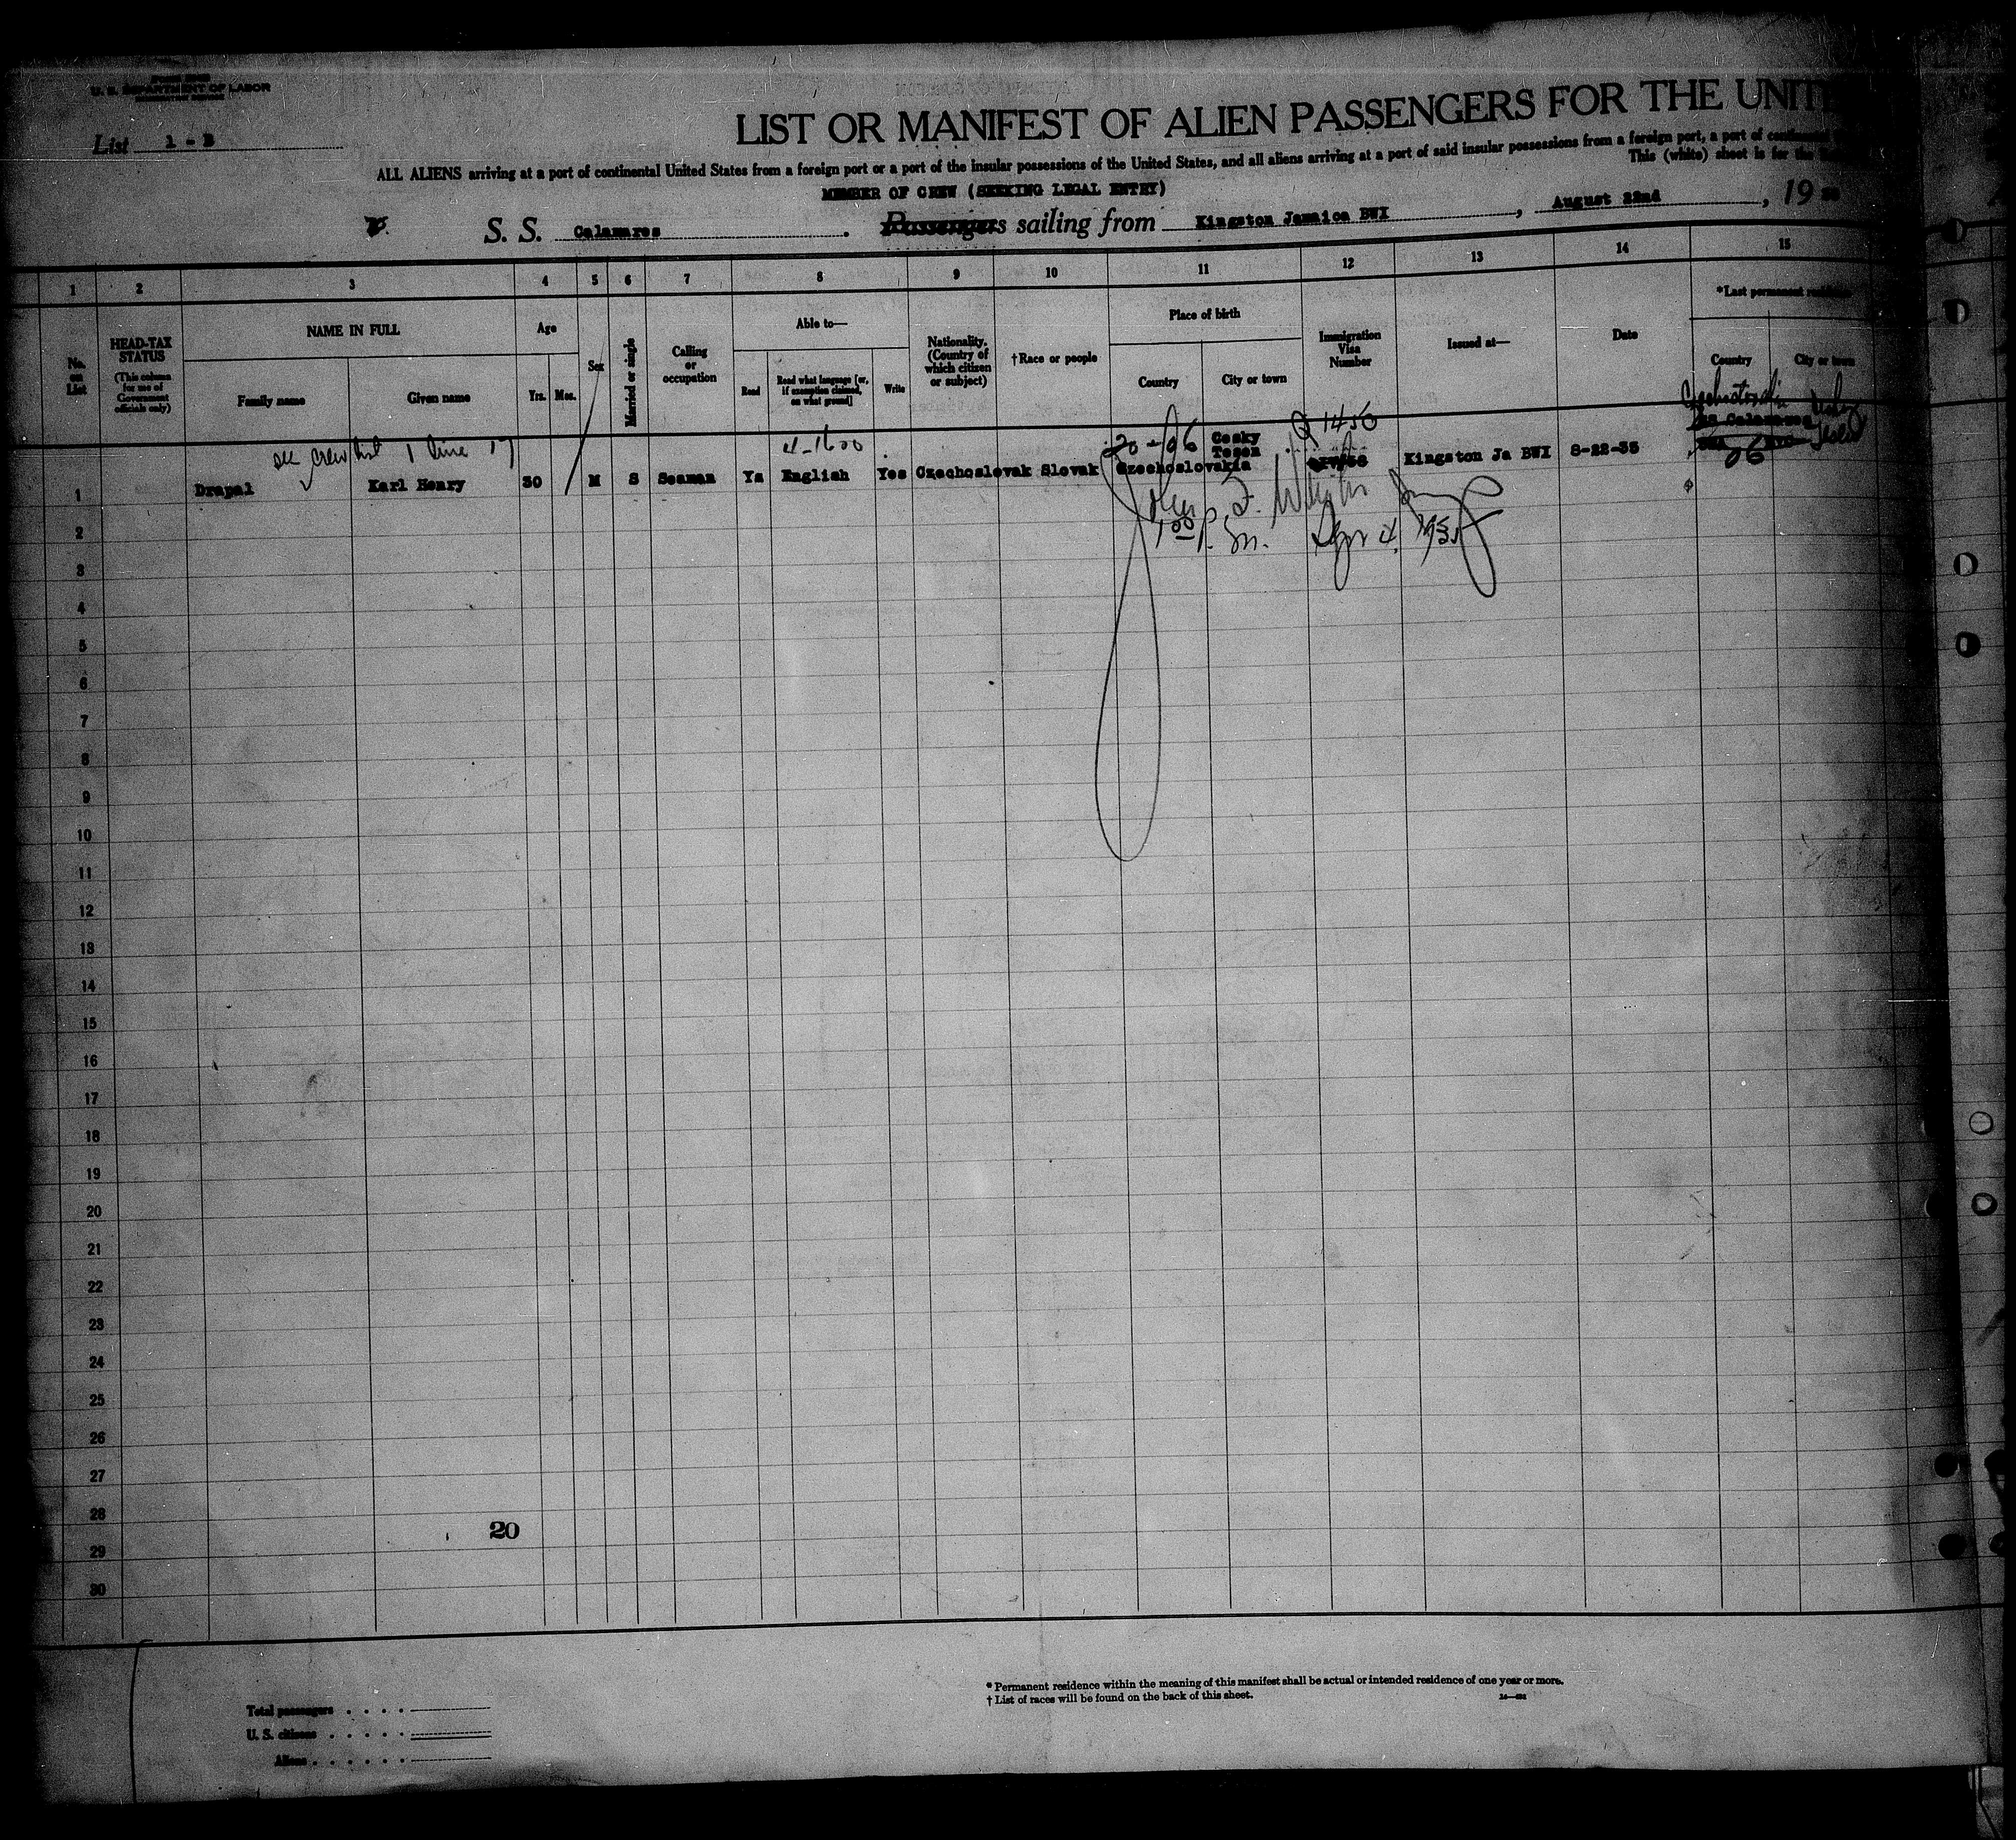 U. S. DEPARTMENT OF LABOR
List 1 - B
LIST OR MANIFEST OF ALIEN PASSENGERS FOR THE UNIT
ALL ALIENS arriving at a port of continental United States from a foreign port or a port of the insular possessions of the United States, and all aliens arriving at a port of said insular possessions from a foreign port, a port of continental
This (white) sheet is for the
MEMBER OF CREW (SEEKING LEGAL ENTRY)
S. S. Calamares. Passengers sailing from Kingston Jamaica BWI, August 22nd, 19
1 2 3 4 5 6 7 8 9 10 11 12 13 14 15
No. on List
HEAD-TAX STATUS
(This column for use of Government officials only)
NAME IN FULL
Family name
Given name
Age
Yrs. Mos.
Sex
Married or single
Calling or occupation
Able to—
Read
Read what language [or, if exemption claimed, on what ground]
Write
Nationality. (Country of which citizen or subject)
†Race or people
Place of birth
Country
City or town
Immigration Visa Number
Issued at—
Date
*Last permanent residence
Country
City or town
see crew list 1 line 17
4-1600
20-06
Cesky Tesen
Q 1456
1 Drapal Karl Henry 30 M S Seaman Ys English Yes Czechoslovak Slovak Czechoslovakia Kingston Ja BWI 8-22-35
06
John F.
1 00 p.m. 4,
2
3
4
5
6
7
8
9
10
11
12
13
14
15
16
17
18
19
20
21
22
23
24
25
26
27
28
20
29
30
* Permanent residence within the meaning of this manifest shall be actual or intended residence of one year or more.
† List of races will be found on the back of this sheet.
Total passengers
U. S. citizens
Aliens